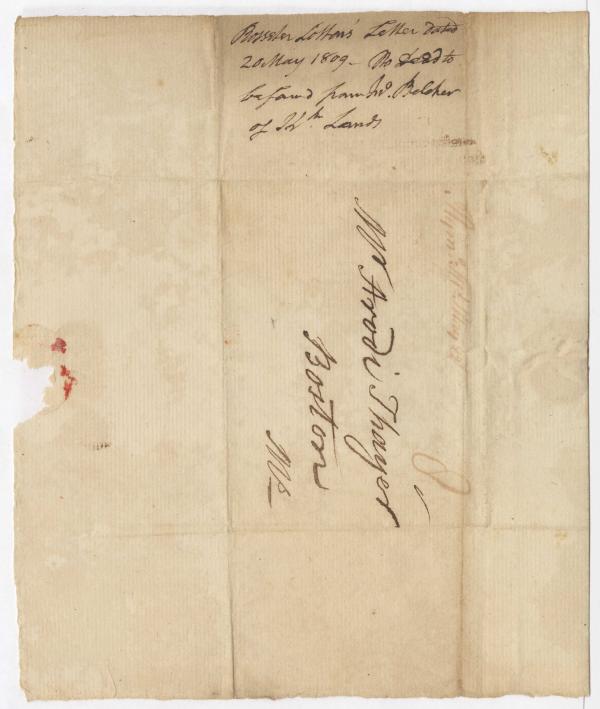 Rossetter Cotton's Letter dated
20 May 1809 – No Deed to
be found from Mr. Belcher
of Lands
Mr Arodi Thayer
Boston
Ms